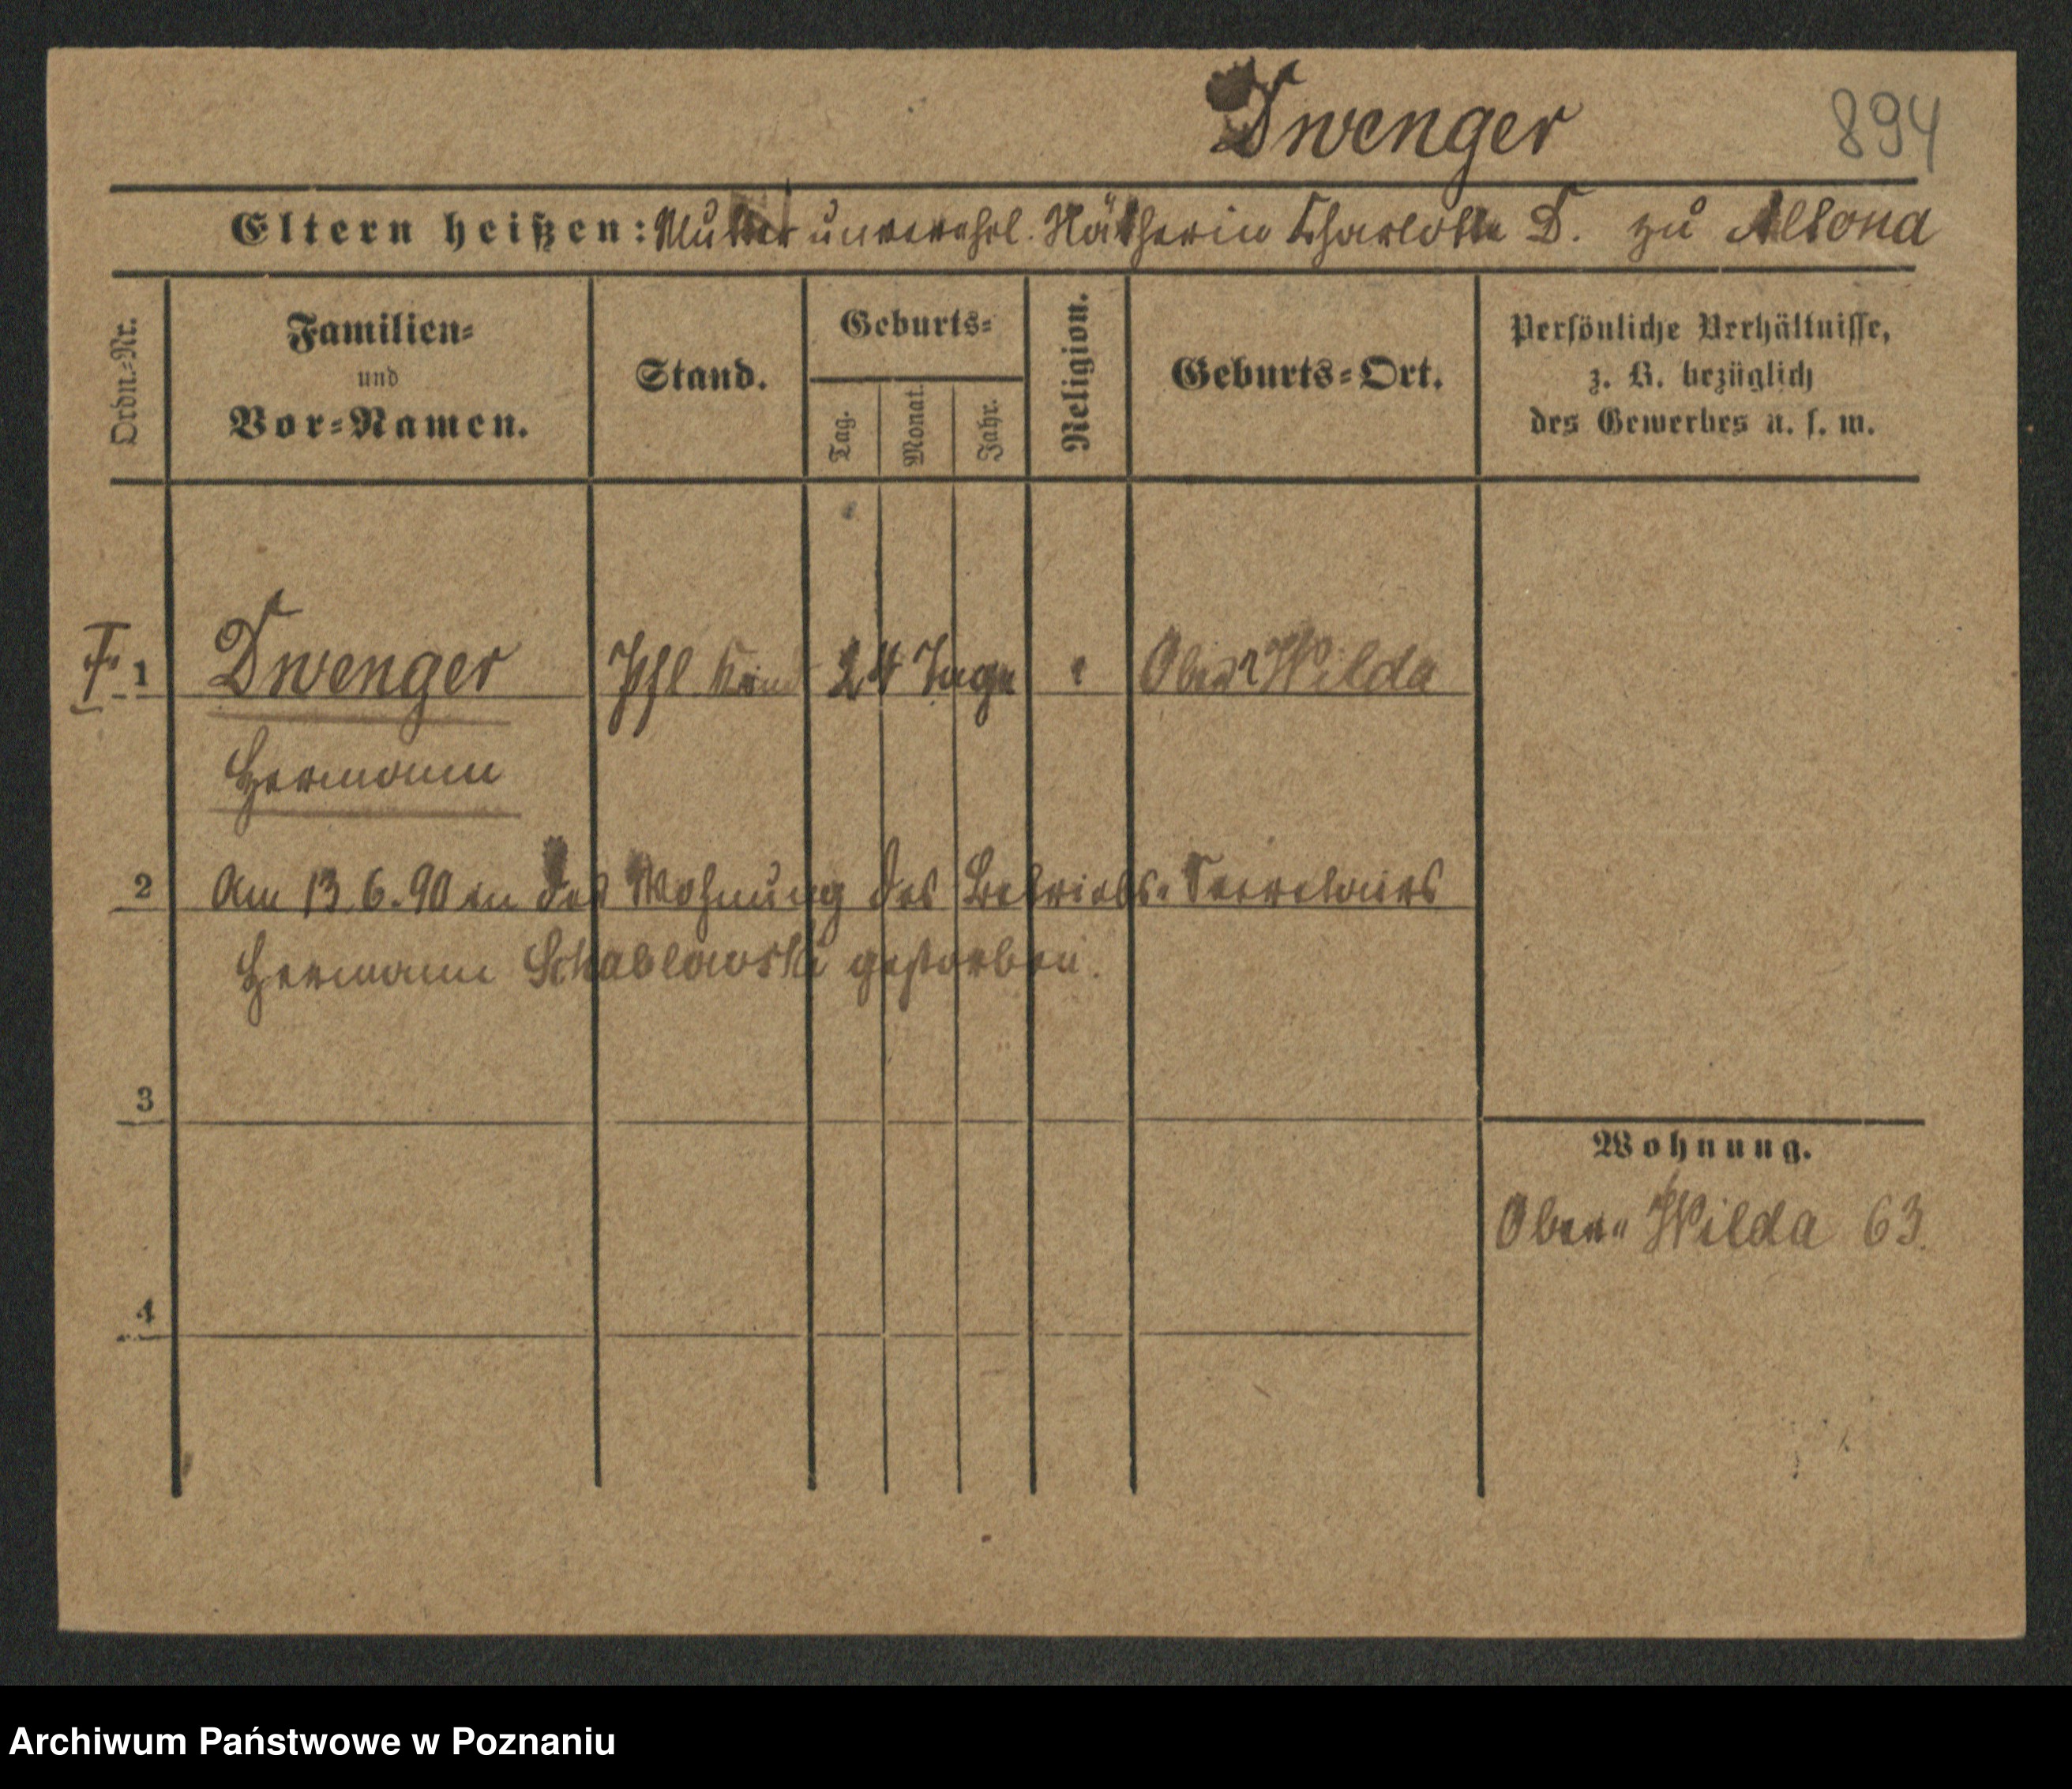 Dwenger 894
Eltern heißen: Mutter unverehel. Nätherin Charlotte D. zu Altona
Ordn.-Nr.
Familien-
und
Vor-Namen.
Stand.
Geburts-
Tag.
Monat.
Jahr.
Religion.
Geburts-Ort.
Persönliche Verhältnisse,
z. B. bezüglich
des Gewerbes u. s. w.
1 Dwenger Pfl. Kind 24 Tage Ober Wilda
Hermann
2 Am 13.6.90 in der Wohnung des Betriebs-Secretairs
Hermann Schablowski gestorben.
3
Wohnung.
Ober-Wilda 63.
4
Archiwum Państwowe w Poznaniu